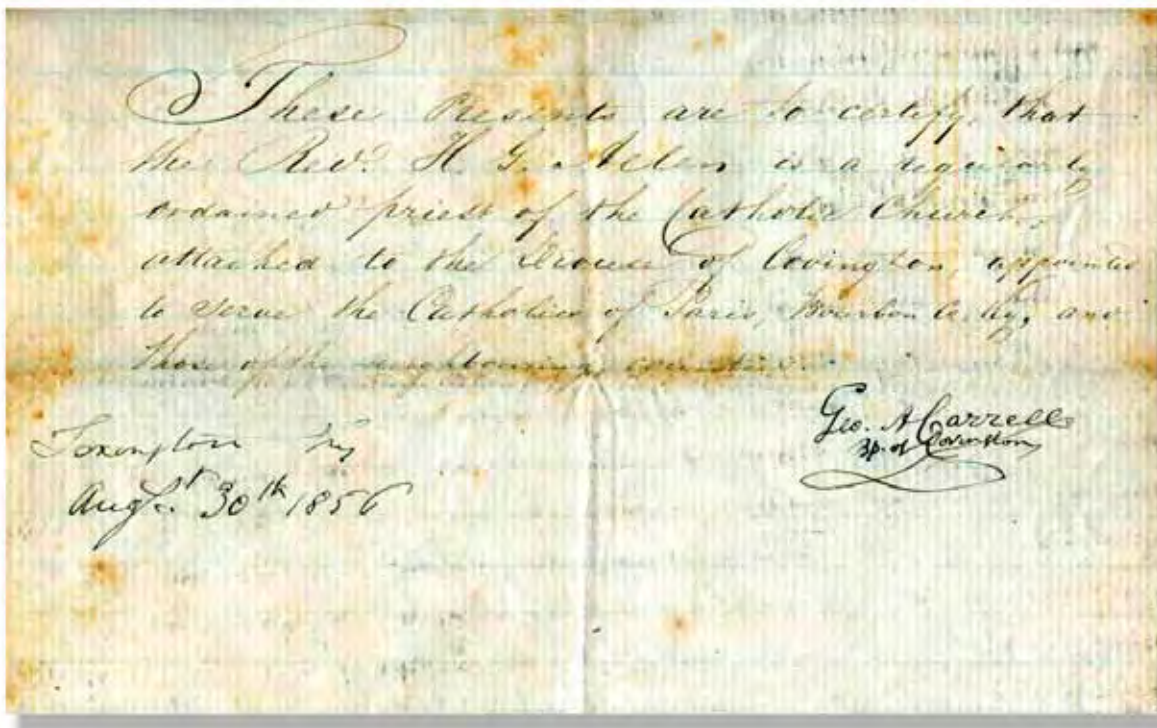 These Presents are to certify, that
the Revd. H. G. Allen is a regularly
ordained priest of the Catholic Church,
attached to the Diocese of Covington, appointed
to serve the Catholics of Paris, Bourbon Co. Ky, and
those of the neighbouring counties.
Geo. A Carrell
Bp. of Covington
Lexington Ky
Augst. 30th 1856